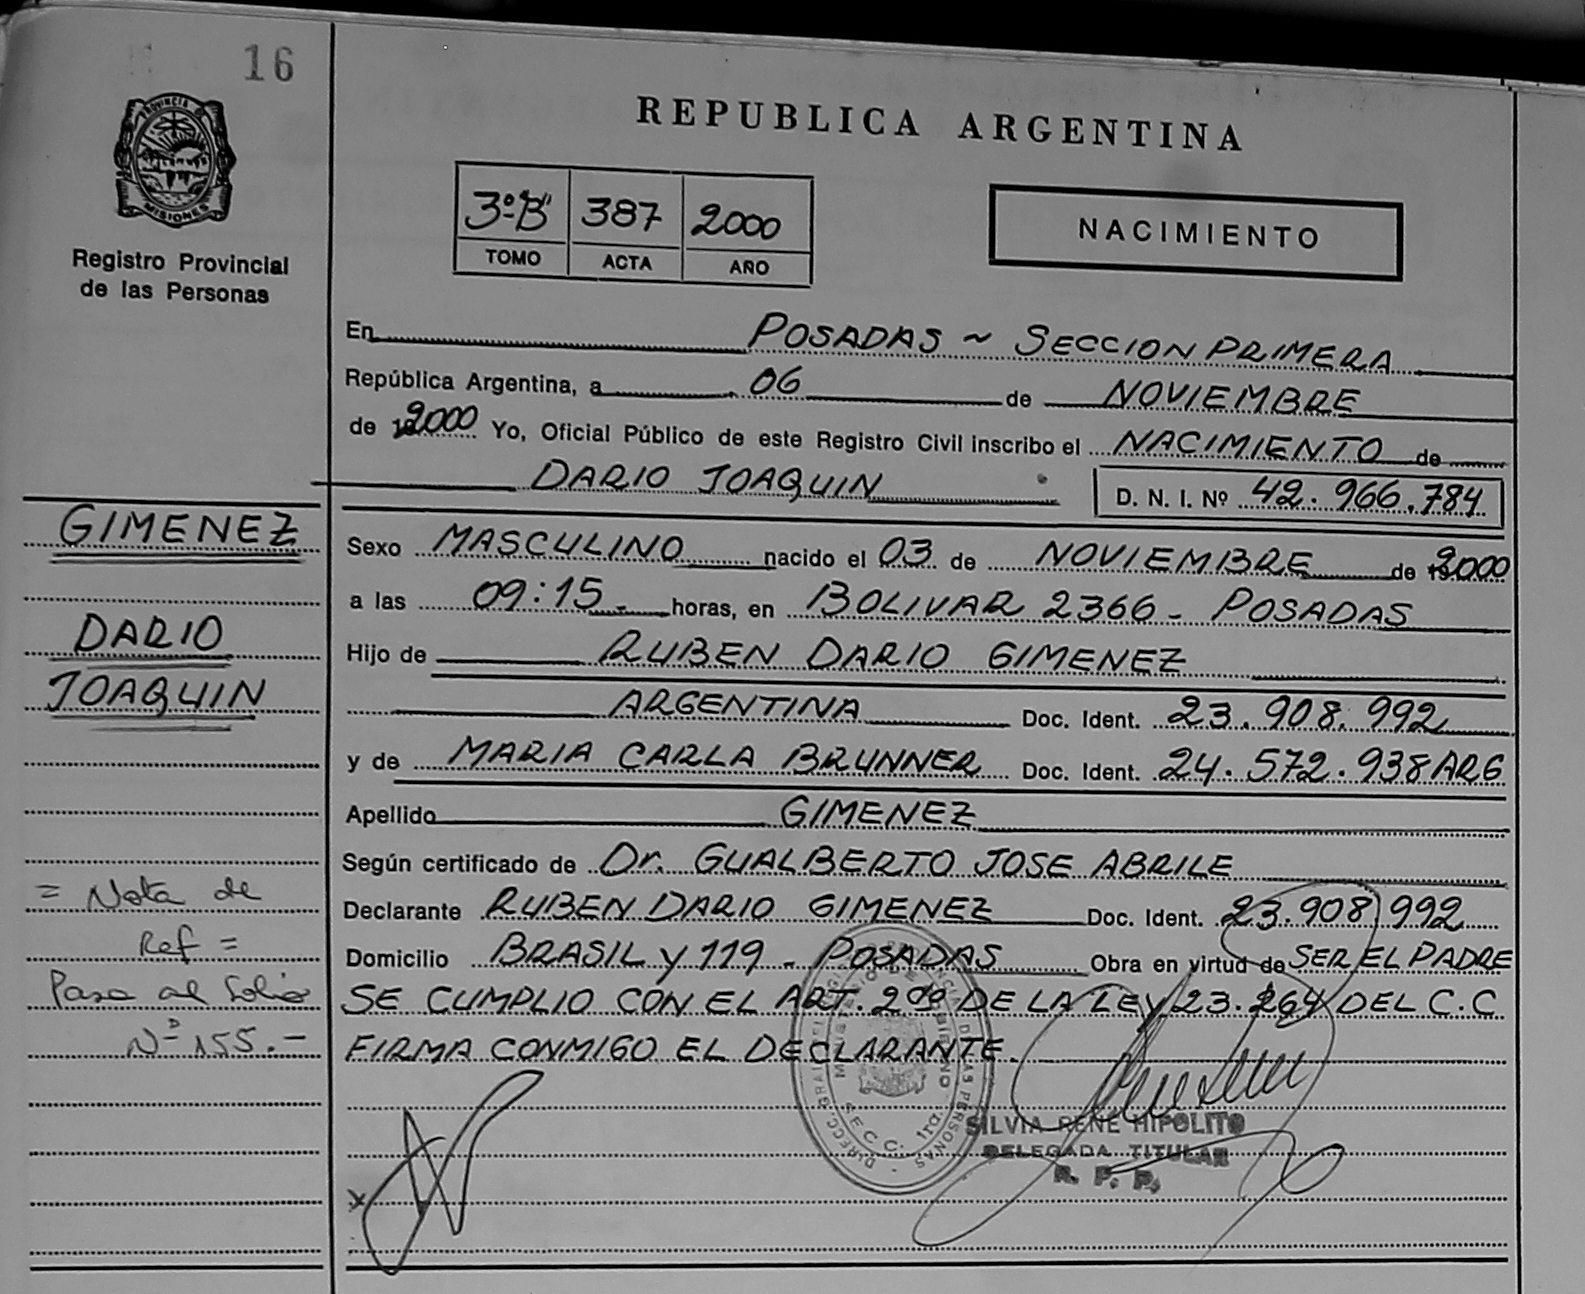 16
PROVINCIA DE
MISIONES
Registro Provincial
de las Personas
REPUBLICA ARGENTINA
3º "B" 387 2000
TOMO ACTA AÑO
NACIMIENTO
En POSADAS ~ SECCION PRIMERA
República Argentina, a 06 de NOVIEMBRE
de 2000 Yo, Oficial Público de este Registro Civil inscribo el NACIMIENTO de
DARIO JOAQUIN D. N. I. Nº 42.966.784
GIMENEZ
DARIO
JOAQUIN
Sexo MASCULINO nacido el 03 de NOVIEMBRE de 2000
a las 09:15 horas, en BOLIVAR 2366 - POSADAS
Hijo de RUBEN DARIO GIMENEZ
ARGENTINA Doc. Ident. 23.908.992
y de MARIA CARLA BRUNNER Doc. Ident. 24.572.938 ARG
Apellido GIMENEZ
Según certificado de Dr. GUALBERTO JOSE ABRILE
Declarante RUBEN DARIO GIMENEZ Doc. Ident. 23.908.992
Domicilio BRASIL y 119 - POSADAS Obra en virtud de SER EL PADRE
SE CUMPLIO CON EL ART. 2do DE LA LEY 23.264 DEL C.C
FIRMA CONMIGO EL DECLARANTE.
= Nota de
Ref =
Pasa al folio
Nº 155.-
SECC. 1ra.
SILVIA RENE HIPOLITO
DELEGADA TITULAR
R. P. P.
X